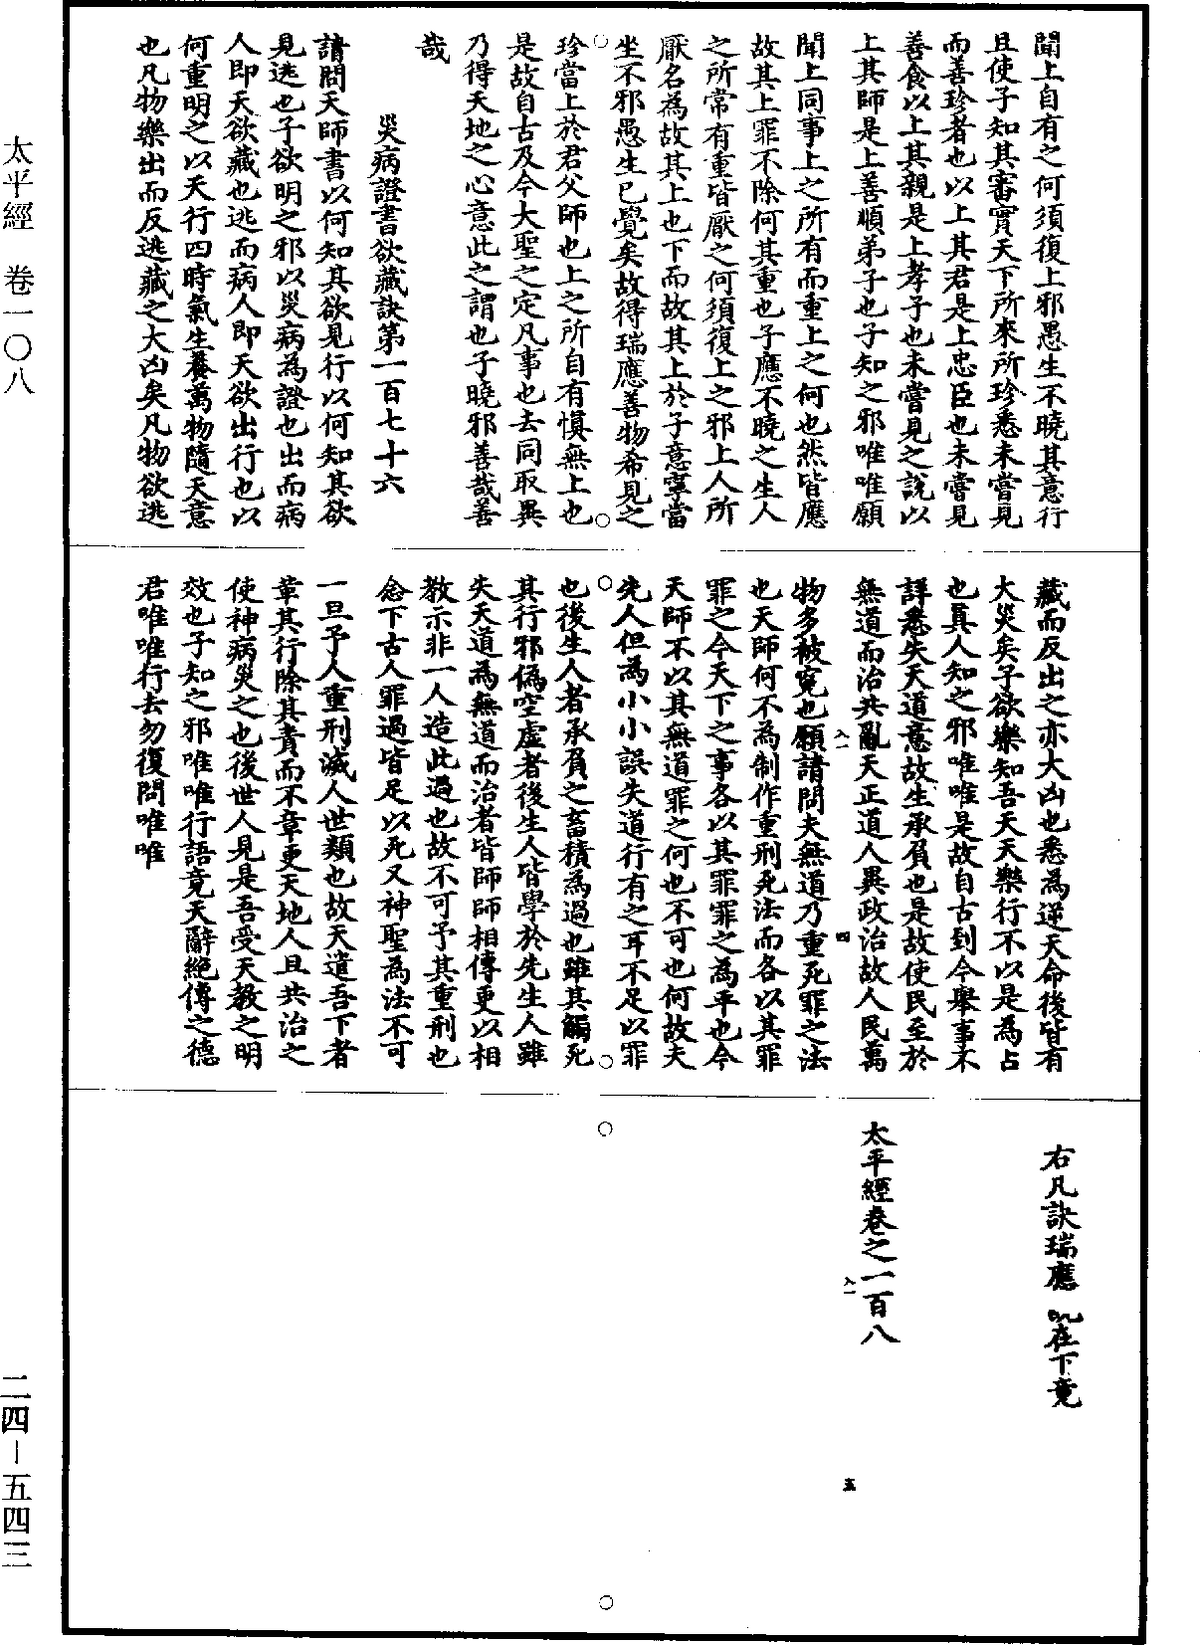 聞上自有之何須復上邪愚生不曉其意行
且使子知其審實天下所來所珍悉未嘗見
而善珍者也以上其君是上忠臣也未嘗見
善食以上其親是上孝子也未嘗見之說以
上其師是上善順弟子也子知之邪唯唯願
聞上同事上之所有而重上之何也然皆應
故其上罪不除何其重也子應不曉之生人
之所常有重皆厭之何須復上之邪上人所
厭名為故其上也下而故其上於子意寧當
坐不邪愚生已覺矣故得瑞應善物希見之
珍當上於君父師也上之所自有慎無上也
是故自古及今大聖之定凡事也去同取異
乃得天地之心意此之謂也子曉邪善哉善
哉
災病證書欲藏訣第一百七十六
請問天師書以何知其欲見行以何知其欲
見逃也子欲明之邪以災病為證也出而病
人即天欲藏也逃而病人即天欲出行也以
何重明之以天行四時氣生養萬物隨天意
也凡物樂出而反逃藏之大凶矣凡物欲逃
藏而反出之亦大凶也悉為逆天命後皆有
大災矣子欲樂知吾天天樂行不以是為占
也真人知之邪唯唯是故自古到今舉事不
詳悉失天道意故生承負也是故使民至於
無道而治共亂天正道人異政治故人民萬
物多被冤也願請問夫無道乃重死罪之法
也天師何不為制作重刑死法而各以其罪
罪之今天下之事各以其罪罪之為平也今
天師不以其無道罪之何也不可也何故夫
先人但為小小誤失道行有之耳不足以罪
也後生人者承負之畜積為過也雖其觸死
其行邪偽空虛者後生人皆學於先生人雖
失天道為無道而治者皆師師相傳更以相
教示非一人造此過也故不可予其重刑也
念下古人罪過皆足以死又神聖為法不可
一旦予人重刑滅人世類也故天遣吾下者
章其行除其責而不章更天地人且共治之
使神病災之也後世人見是吾受天教之明
效也子知之邪唯唯行語竟天辭絕傳之德
君唯唯行去勿復問唯唯
右凡訣瑞應 在下竟
太平經卷之一百八
入一
四
入一
五
太平經 卷一〇八
二四－五四三